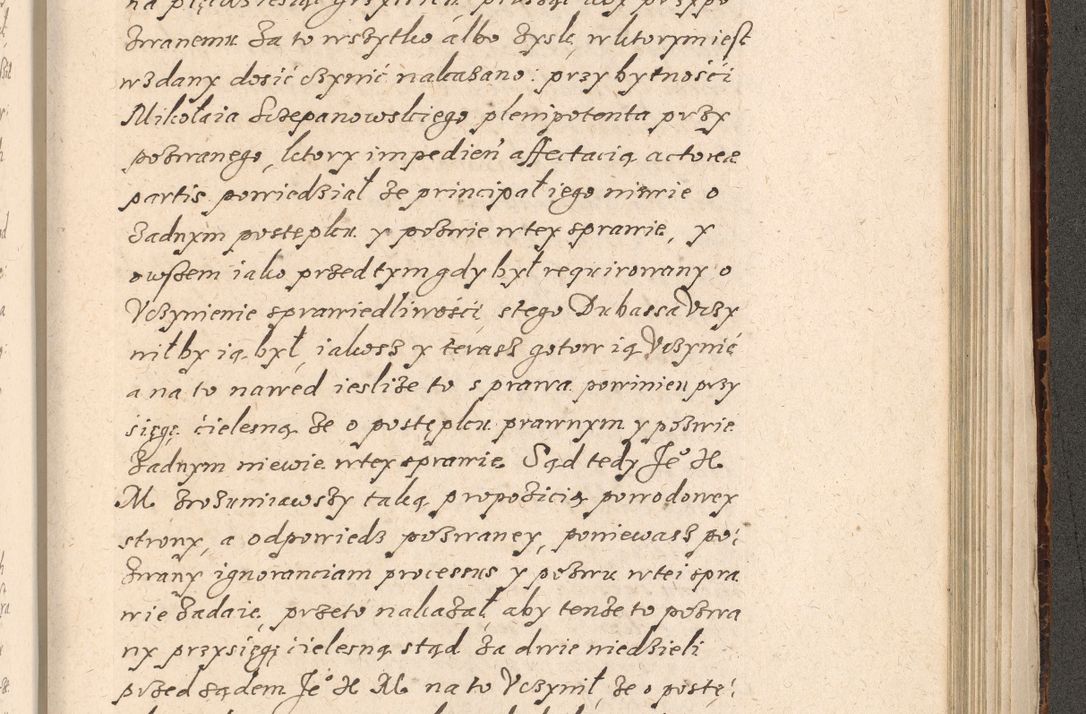 zwanemu za to wszytko albo zysk, w ktorym iest
wzdany dosić czynić nakazano: przy bytności
Mikołaia Sczepanowskiego plenipotenta przy
pozwanego, ktory impedień affectacią actoreæ
partis powiedział że principał iego niwie o
żadnym postępku y pozwie w tey sprawie, y
owszem iako przed tym gdy był requirowany o
Vczynienie sprawiedliwości stego Dubassa Vczy
niłby ią był, iakosz y terasz gotow ią Vczynić
a na to nawed iesliże to sprawa powinien przy
sięgę cielesną że o postępku prawnym y pozwie
żadnym niewie w tey sprawie. Sąd tedy Je⁰ K
M. zrozumiawszy taką propozicią powodowey
strony, a odpowiedz pozwaney, poniewasz po:
zwany ignoranciam processus y pozwu w tei spra
wie zadaie, przeto nakazał, aby tenże to pozwa
ny przysięgę cielesną stąd za dwie niedzieli
przed sądem Je⁰ K M. na to Vczynił, że o postę: